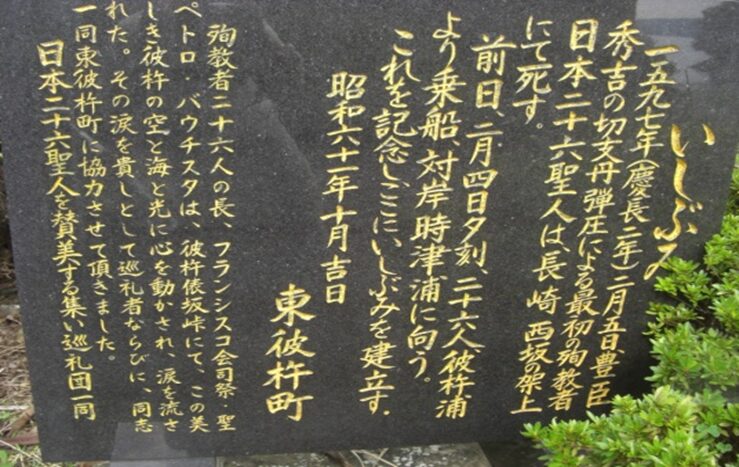 いしぶみ
一五九七年(慶長二年)二月五日、豊臣
秀吉の切支丹弾圧による最初の殉教者
日本二十六聖人は、長崎西坂の架上
にて死す。
前日、二月四日夕刻、二十六人、彼杵浦
より乗船、対岸時津浦に向う。
これを記念しここにいしぶみを建立す.
昭和六十一年十月吉日
東彼杵町
殉教者二十六人の長、フランシスコ会司祭 聖
ペトロ・バウチスタは、彼杵俵坂峠にて、この美
しき彼杵の空と海と光に心を動かされ、涙を流さ
れた。その涙を貴しとして巡礼者ならびに、同志
一同東彼杵町に協力させて頂きました。
日本二十六聖人を賛美する集い巡礼団一同